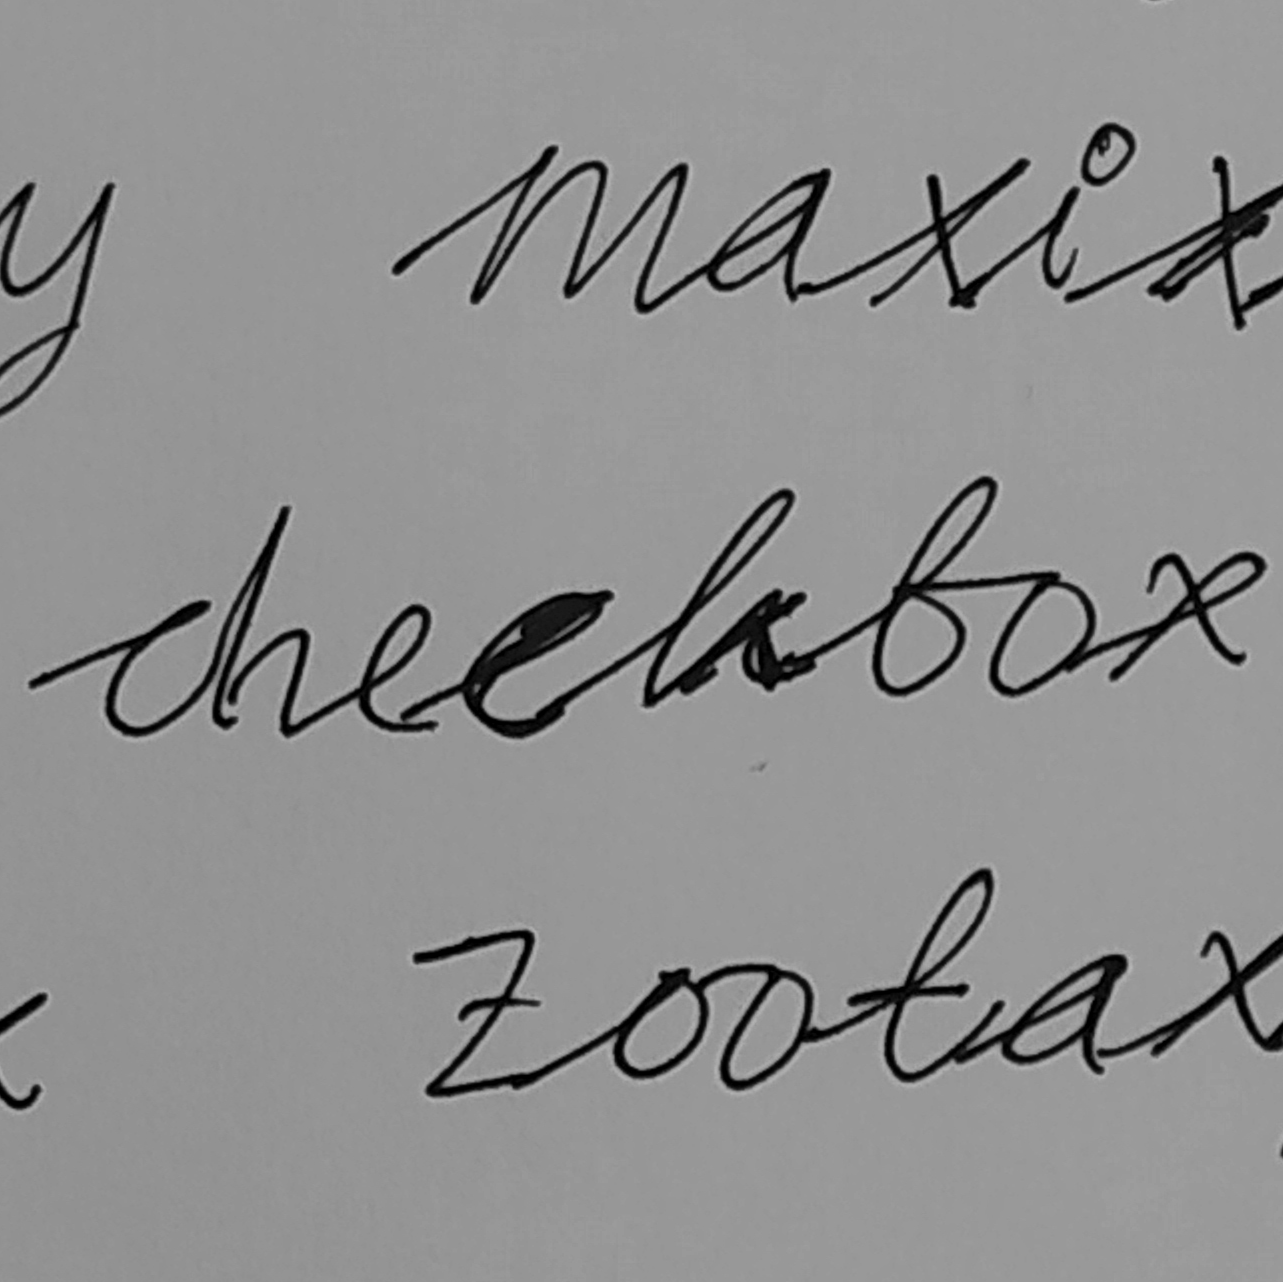 y maxix
checkbox
x zootax